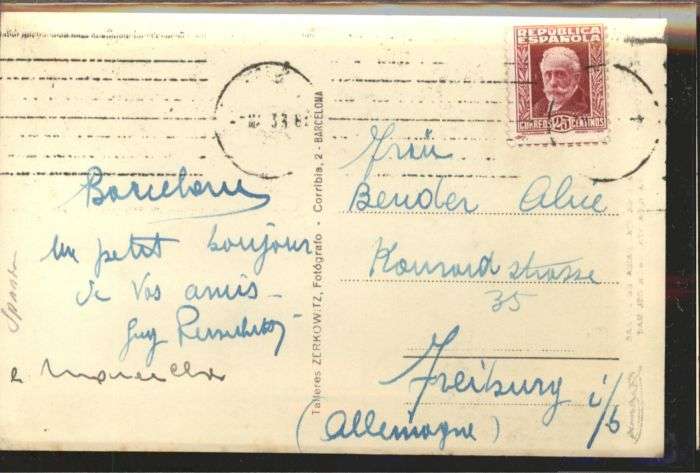 REPÚBLICA
ESPAÑOLA
CORREOS 25 CENTIMOS
33
Barcelone
un petit bonjour
de vos amis -
Guy
Talleres ZERKOWITZ, Fotógrafo - Corribia, 2 - BARCELONA
Frau
Bender Alice
Konradstrasse
35
Freiburg i/b
(Allemagne)